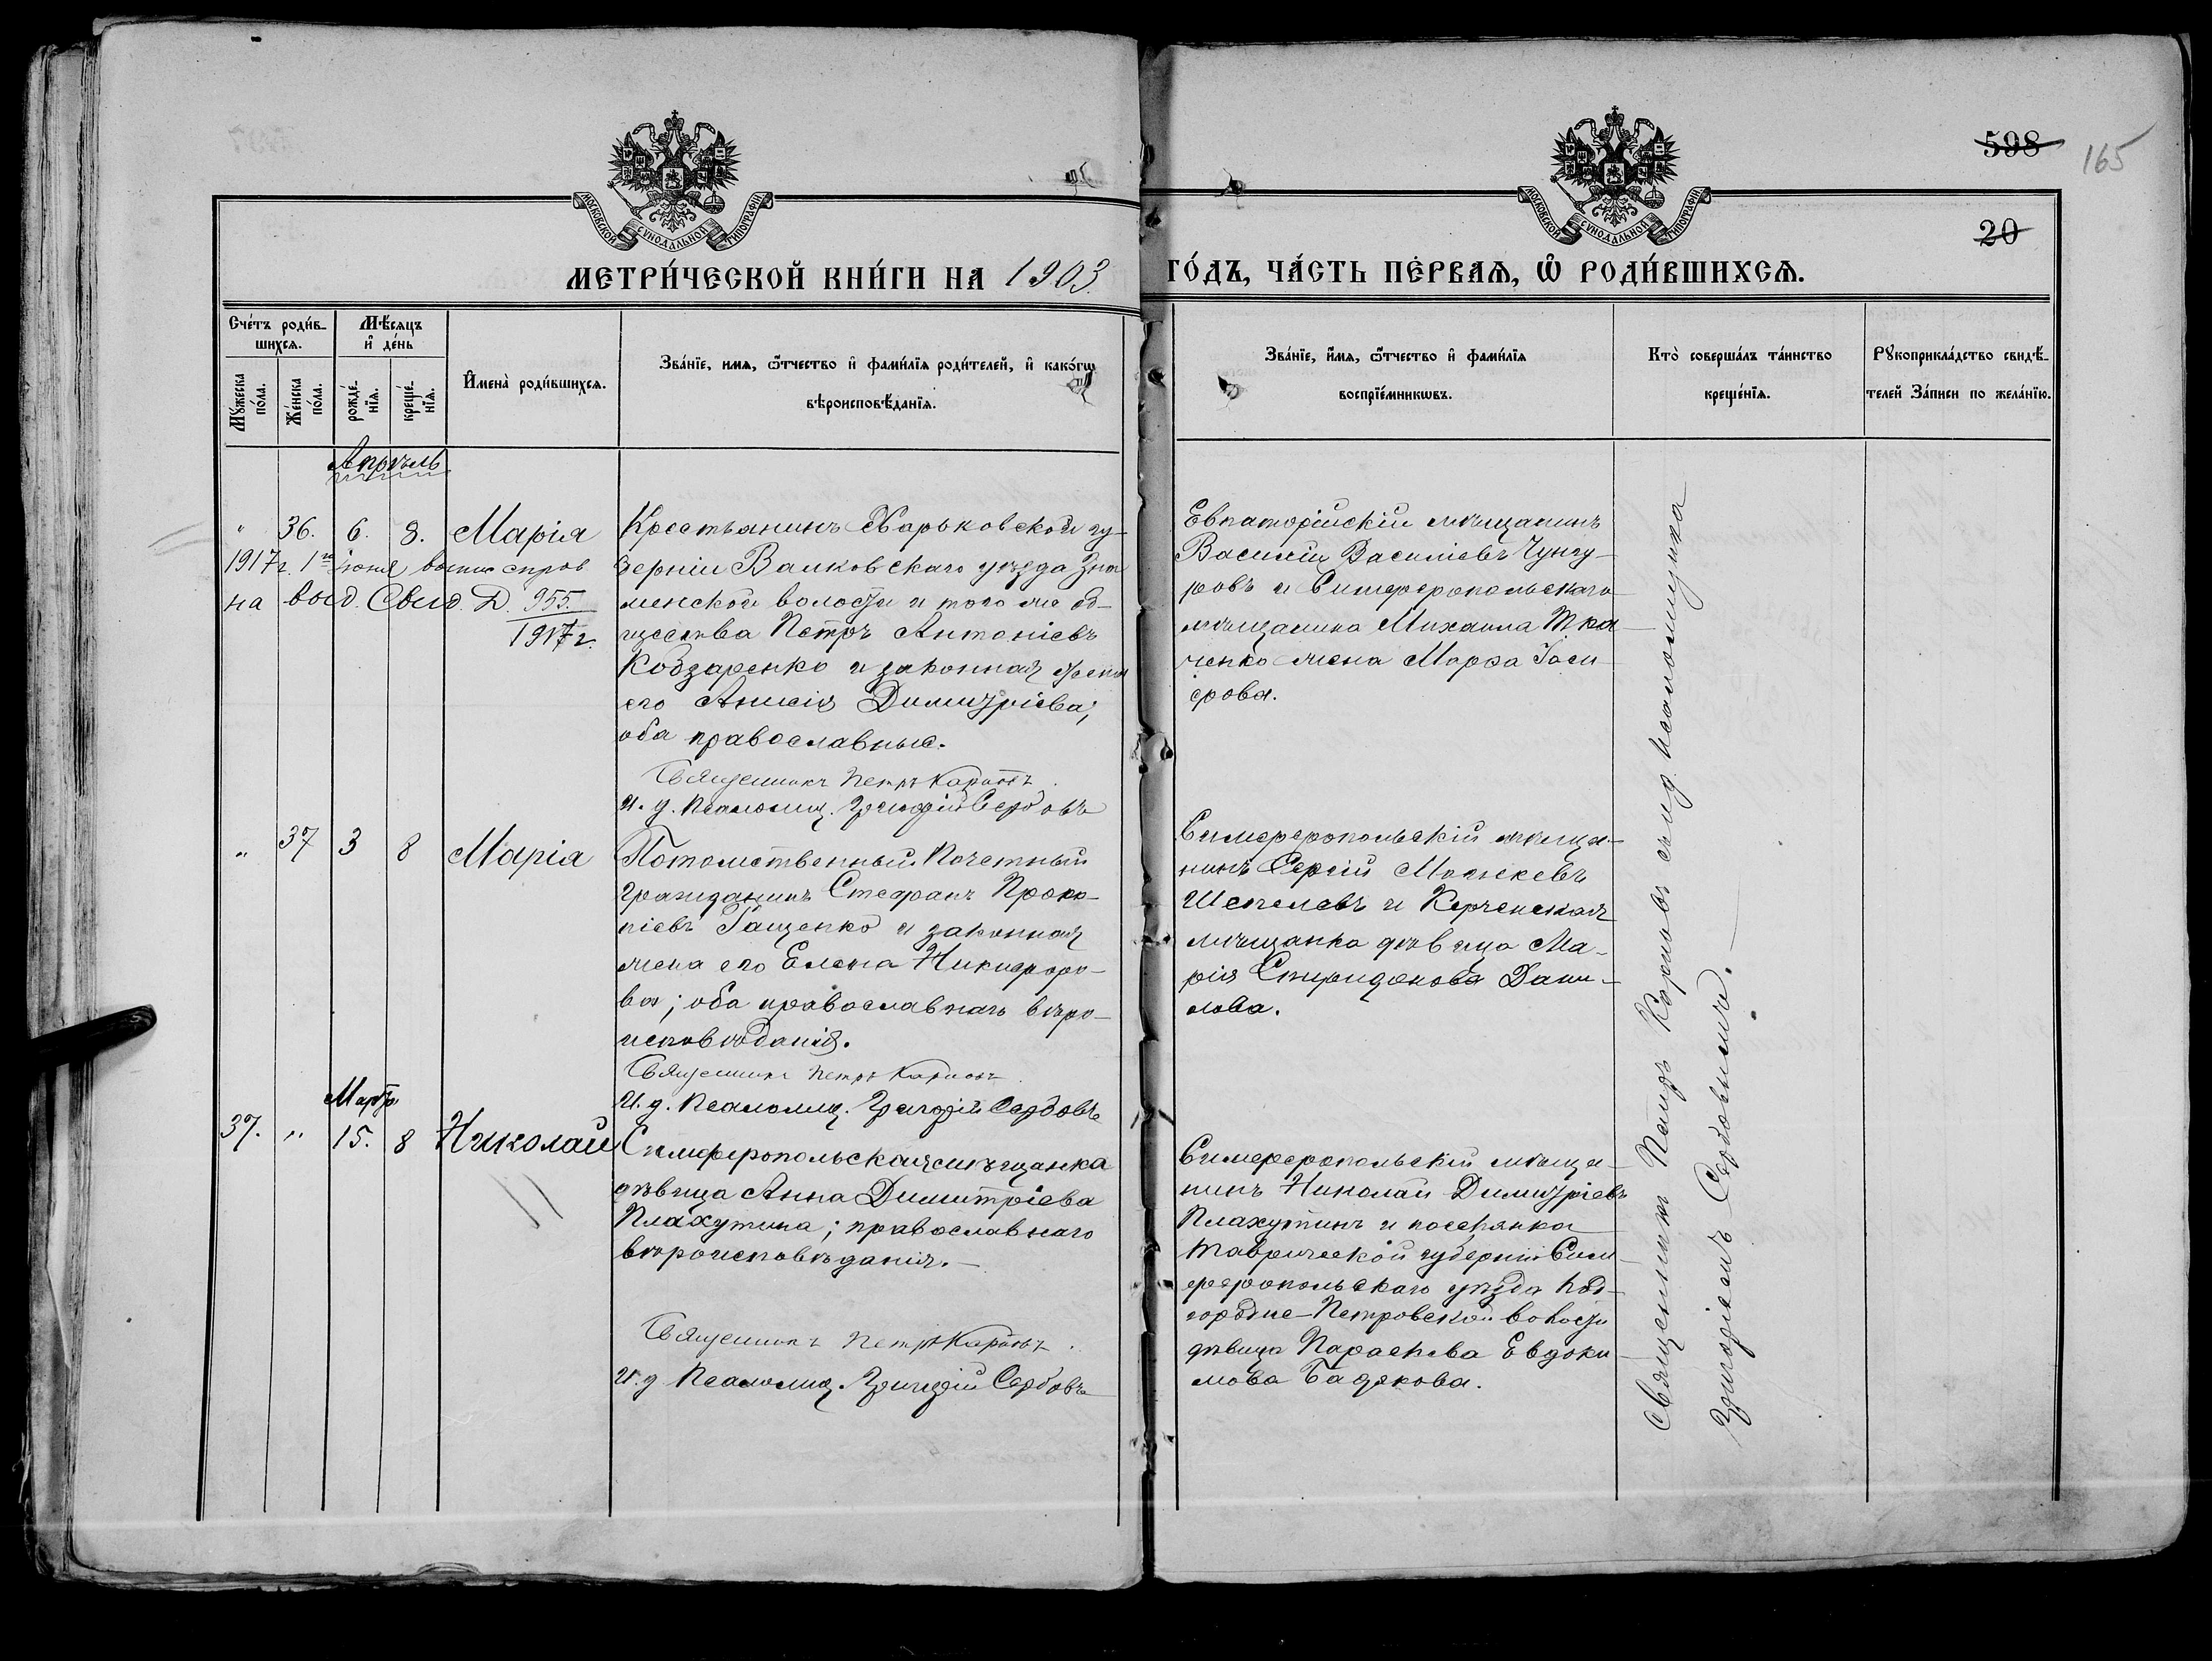 598
165
20
МОСКОВСКОЙ СѴНОДАЛЬНОЙ ТИПОГРАФІИ
МОСКОВСКОЙ СѴНОДАЛЬНОЙ ТИПОГРАФІИ
МЕТРИ́ЧЕСКОЙ КНИ́ГИ НА 1903. ГО́ДЪ, ЧА́СТЬ ПЕ́РВАѦ, Ѡ҆ РОДИ́ВШИХСѦ.
Сче́тъ роди́в-
шихсѧ.
Мꙋ́жеска по́ла.
Же́нска по́ла.
Мѣ́сѧцъ
и҆ де́нь
рожде́-
нїѧ.
креще́-
нїѧ.
И҆мена̀ роди́вшихсѧ.
Зва́нїе, имѧ, ѻ҆́тчество и҆ фами́лїѧ роди́телей, и҆ како́гѡ
вѣроисповѣ́данїѧ.
Зва́нїе, и҆́мѧ, ѻ҆́тчество и҆ фами́лїѧ
воспрїе́мникѡвъ.
Кто̀ соверша́лъ та́инство
креще́нїѧ.
Рꙋкоприкла́дство свидѣ́-
телей За́писи по жела́нїю.
Апрѣль
" 36. 6. 8. Марія
1917 г. 1го іюня
на выд. Свид. 955.
1917 г.
Крестьянинъ Харьковской гу-
берніи Валковскаго уѣзда Зна
менской волости и того же об-
щества Петръ Антоніевъ
Кобзаренко и законная жена
его Анисія Димитріева;
оба православные.
Священникъ Петръ Карповъ.
И. д. Псаломщ. Григорій Сербовъ
Евпаторійскій мѣщанинъ
Василій Василіевъ Чунгу-
ровъ и Симферопольскаго
мѣщанина Михаила Тка-
ченко жена Марфа Іоси-
фова.
" 37 3 8 Марія
Потомственный Почетный
гражданинъ Стефанъ Проко-
піевъ Гащенко и законная
жена его Елена Никифоро-
ва; оба православнаго вѣро-
исповѣданія.
Священникъ Петръ Карповъ
И. д. Псаломщ. Григорій Сербовъ
Симферопольскій мѣща-
нинъ Сергій
Шепелевъ и Керченская
мѣщанка дѣвица Ма-
рія Спиридонова Дани-
лова.
Мартъ
37. " 15. 8 Николай
Симферопольская мѣщанка
дѣвица Анна Димитріева
Плахутина; православнаго
вѣроисповѣданія.
Священникъ Петръ Карповъ.
И. д. Псаломщ. Григорій Сербовъ
Симферопольскій мѣща-
нинъ Николай Димитріевъ
Плахутинъ и поселянка
Таврической губерніи Сим-
феропольскаго уѣзда Под-
городне-Петровской волости
дѣвица Параскева Евдоки-
мова Бадякова.
Священникъ Петръ Карповъ съ и. д. псаломщика
Григоріемъ Сербовымъ.